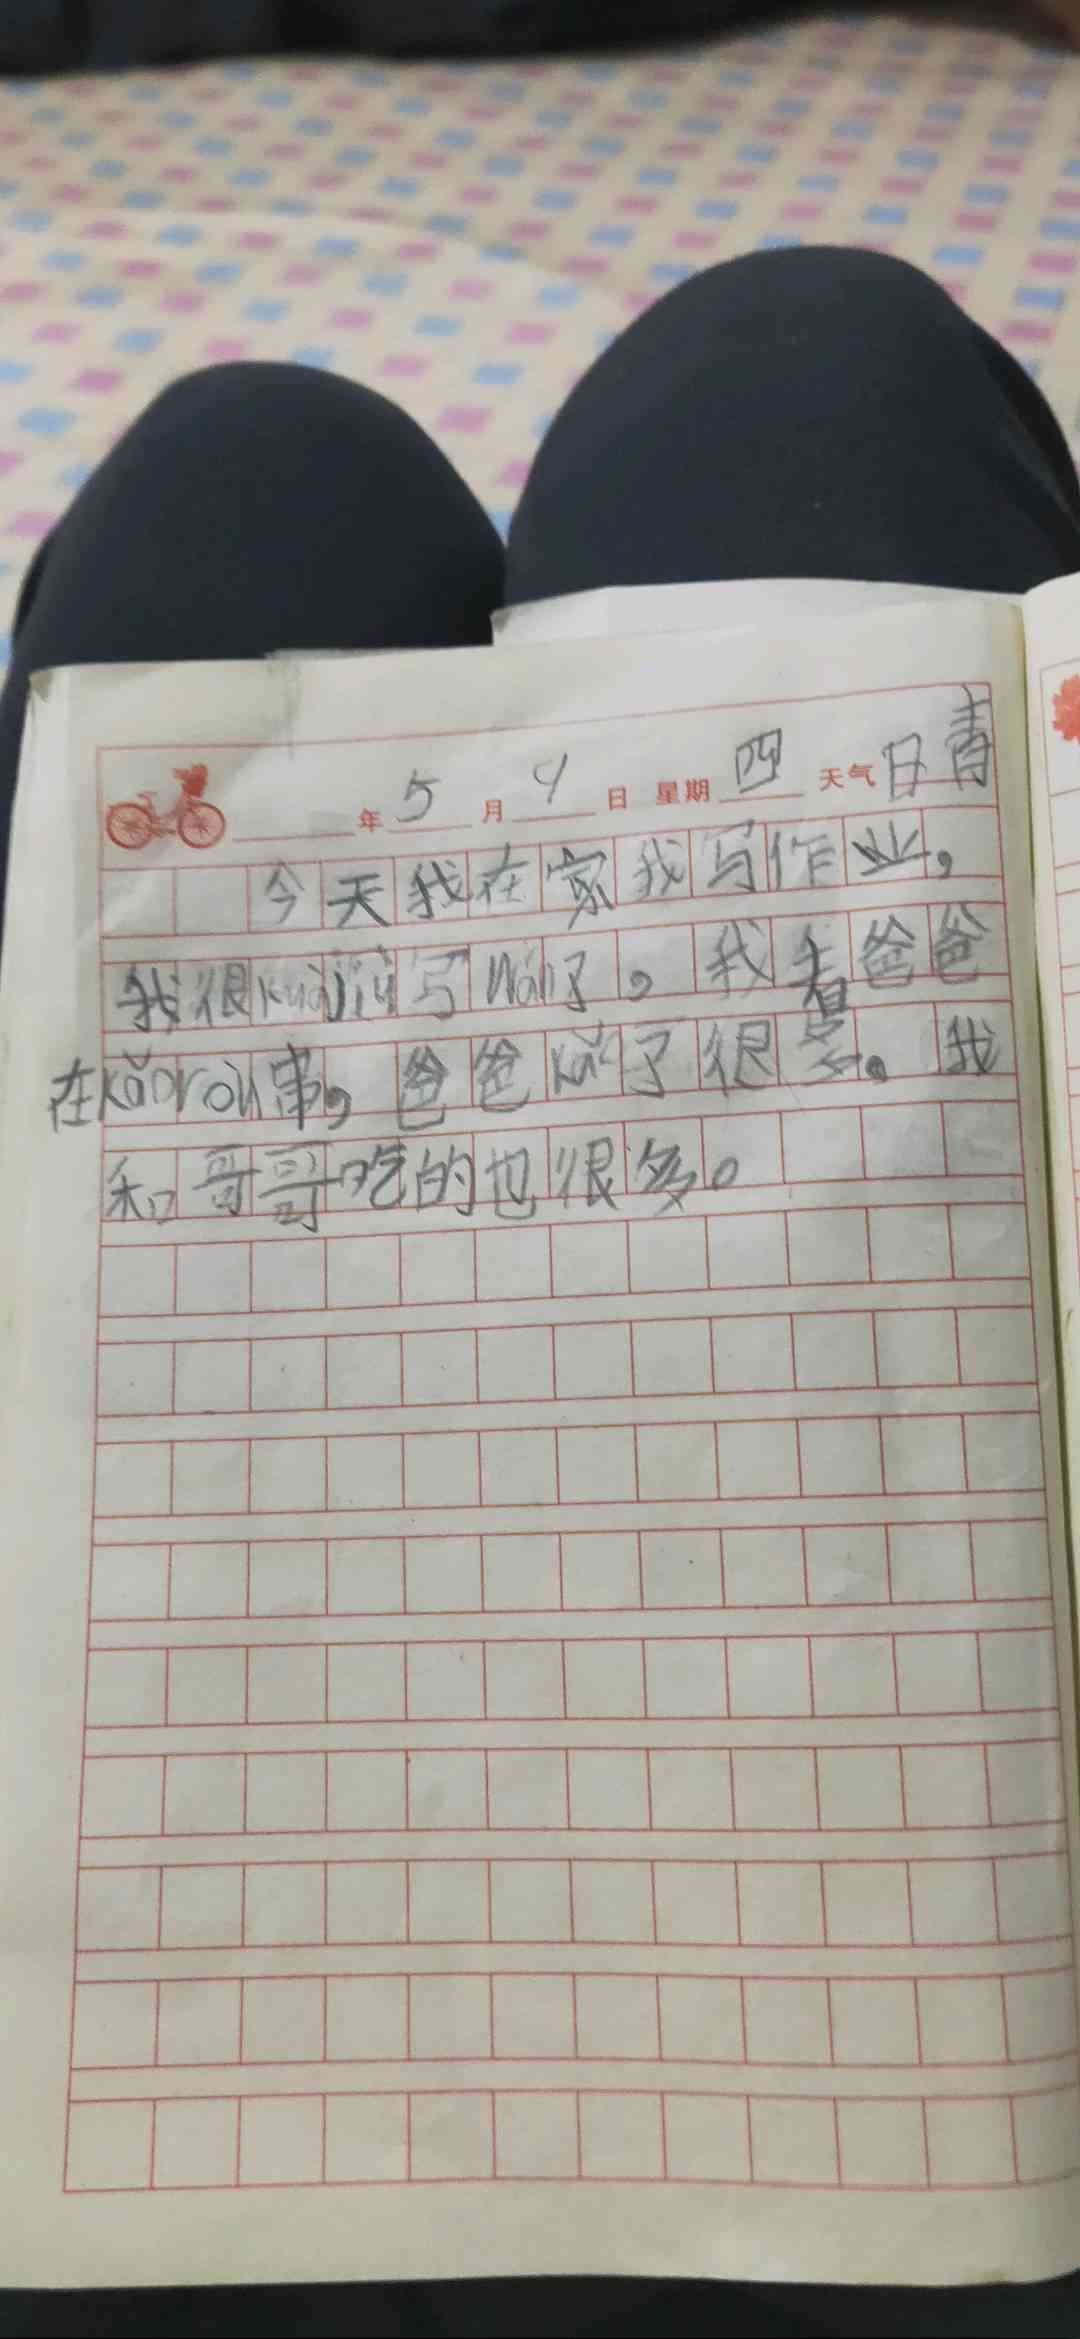 年 5 月 9 日 星期 四 天气 晴
今天我在家我写作业，
我很kuài jiù写wán了。我看爸爸
在kǎo ròu串，爸爸kǎo了很多。我
和哥哥吃的也很多。